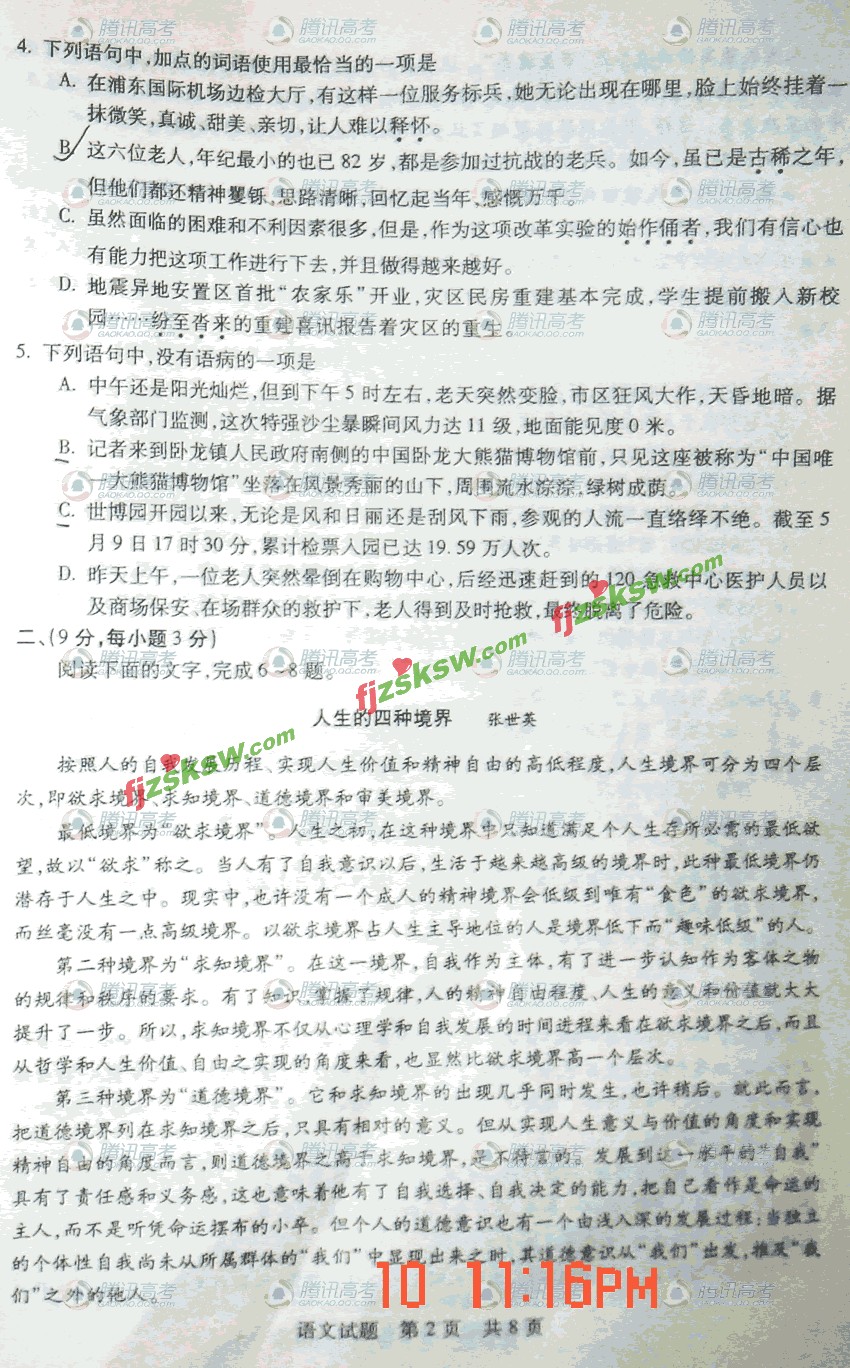 4. 下列语句中,加点的词语使用最恰当的一项是
A. 在浦东国际机场边检大厅,有这样一位服务标兵,她无论出现在哪里,脸上始终挂着一
抹微笑,真诚、甜美、亲切,让人难以释怀。
B. 这六位老人,年纪最小的也已 82 岁,都是参加过抗战的老兵。如今,虽已是古稀之年,
但他们都还精神矍铄,思路清晰,回忆起当年、感慨万千。
C. 虽然面临的困难和不利因素很多,但是,作为这项改革实验的始作俑者,我们有信心也
有能力把这项工作进行下去,并且做得越来越好。
D. 地震异地安置区首批“农家乐”开业,灾区民房重建基本完成,学生提前搬入新校
园……纷至沓来的重建喜讯报告着灾区的重生。
5. 下列语句中,没有语病的一项是
A. 中午还是阳光灿烂,但到下午 5 时左右,老天突然变脸,市区狂风大作,天昏地暗。据
气象部门监测,这次特强沙尘暴瞬间风力达 11 级,地面能见度 0 米。
B. 记者来到卧龙镇人民政府南侧的中国卧龙大熊猫博物馆前,只见这座被称为“中国唯
一大熊猫博物馆”坐落在风景秀丽的山下,周围流水淙淙,绿树成荫。
C. 世博园开园以来,无论是风和日丽还是刮风下雨,参观的人流一直络绎不绝。截至 5
月 9 日 17 时 30 分,累计检票入园已达 19.59 万人次。
D. 昨天上午,一位老人突然晕倒在购物中心,后经迅速赶到的 120 急救中心医护人员以
及商场保安、在场群众的救护下,老人得到及时抢救,最终脱离了危险。
二、(9 分,每小题 3 分)
阅读下面的文字,完成 6~8 题。
人生的四种境界 张世英
按照人的自我发展历程、实现人生价值和精神自由的高低程度,人生境界可分为四个层
次,即欲求境界、求知境界、道德境界和审美境界。
最低境界为“欲求境界”。人生之初,在这种境界中只知道满足个人生存所必需的最低欲
望,故以“欲求”称之。当人有了自我意识以后,生活于越来越高级的境界时,此种最低境界仍
潜存于人生之中。现实中,也许没有一个成人的精神境界会低级到唯有“食色”的欲求境界,
而丝毫没有一点高级境界。以欲求境界占人生主导地位的人是境界低下而“趣味低级”的人。
第二种境界为“求知境界”。在这一境界,自我作为主体,有了进一步认知作为客体之物
的规律和秩序的要求。有了知识,掌握了规律,人的精神自由程度、人生的意义和价值就大大
提升了一步。所以,求知境界不仅从心理学和自我发展的时间进程来看在欲求境界之后,而且
从哲学和人生价值、自由之实现的角度来看,也显然比欲求境界高一个层次。
第三种境界为“道德境界”。它和求知境界的出现几乎同时发生,也许稍后。就此而言,
把道德境界列在求知境界之后,只具有相对的意义。但从实现人生意义与价值的角度和实现
精神自由的角度而言,则道德境界之高于求知境界,是不待言的。发展到这一水平的“自我”
具有了责任感和义务感,这也意味着他有了自我选择、自我决定的能力,把自己看作是命运的
主人,而不是听凭命运摆布的小卒。但个人的道德意识也有一个由浅入深的发展过程:当独立
的个体性自我尚未从所属群体的“我们”中显现出来之时,其道德意识从“我们”出发,推及“我
们”之外的他人。
10 11:16PM
语文试题 第 2 页 共 8 页
腾讯高考
GAOKAO.QQ.COM
fjzsksw.com
fjzsksw.com
fjzsksw.com